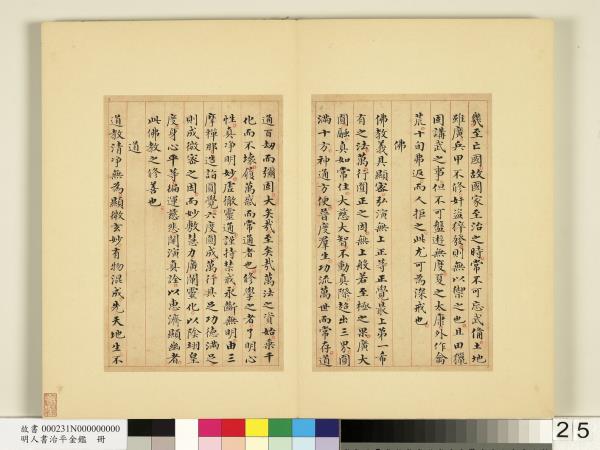 幾至亡國故國家至治之時常不可忘武備土地
雖廣兵甲不修奸盜猝發則無以禦之也且田獵
固講武之事但不可盤遊無度夏之太康外作禽
荒十旬弗返而人拒之此尤可為深戒也
佛
佛教義具顯密弘演無上正等正覺最上第一希
有之法萬行圓正之因無上般若至極之果廣大
圓融真如常住大慈大智不動真際超出三界圓
滿十方神通方便普度羣生功流萬世而常存道
通百劫而彌固大矣哉至矣哉萬法之資始乘千
化而不壞積萬感而常通者也修學之者了明心
性真淨明妙虛徹靈通謹持禁戒永斷無明由三
摩禪那造詣圓覺六度圓成萬行具足功德滿足
則成微密之因而妙敷慧力廣闡靈化以陰翊皇
度身心平等徧運慈悲闡演真詮以惠濟顯幽者
此佛教之修善也
道
道教清淨無為顯微玄妙有物混成先天地生不
故書 000231N000000000
明人書治平金鑑 冊
25